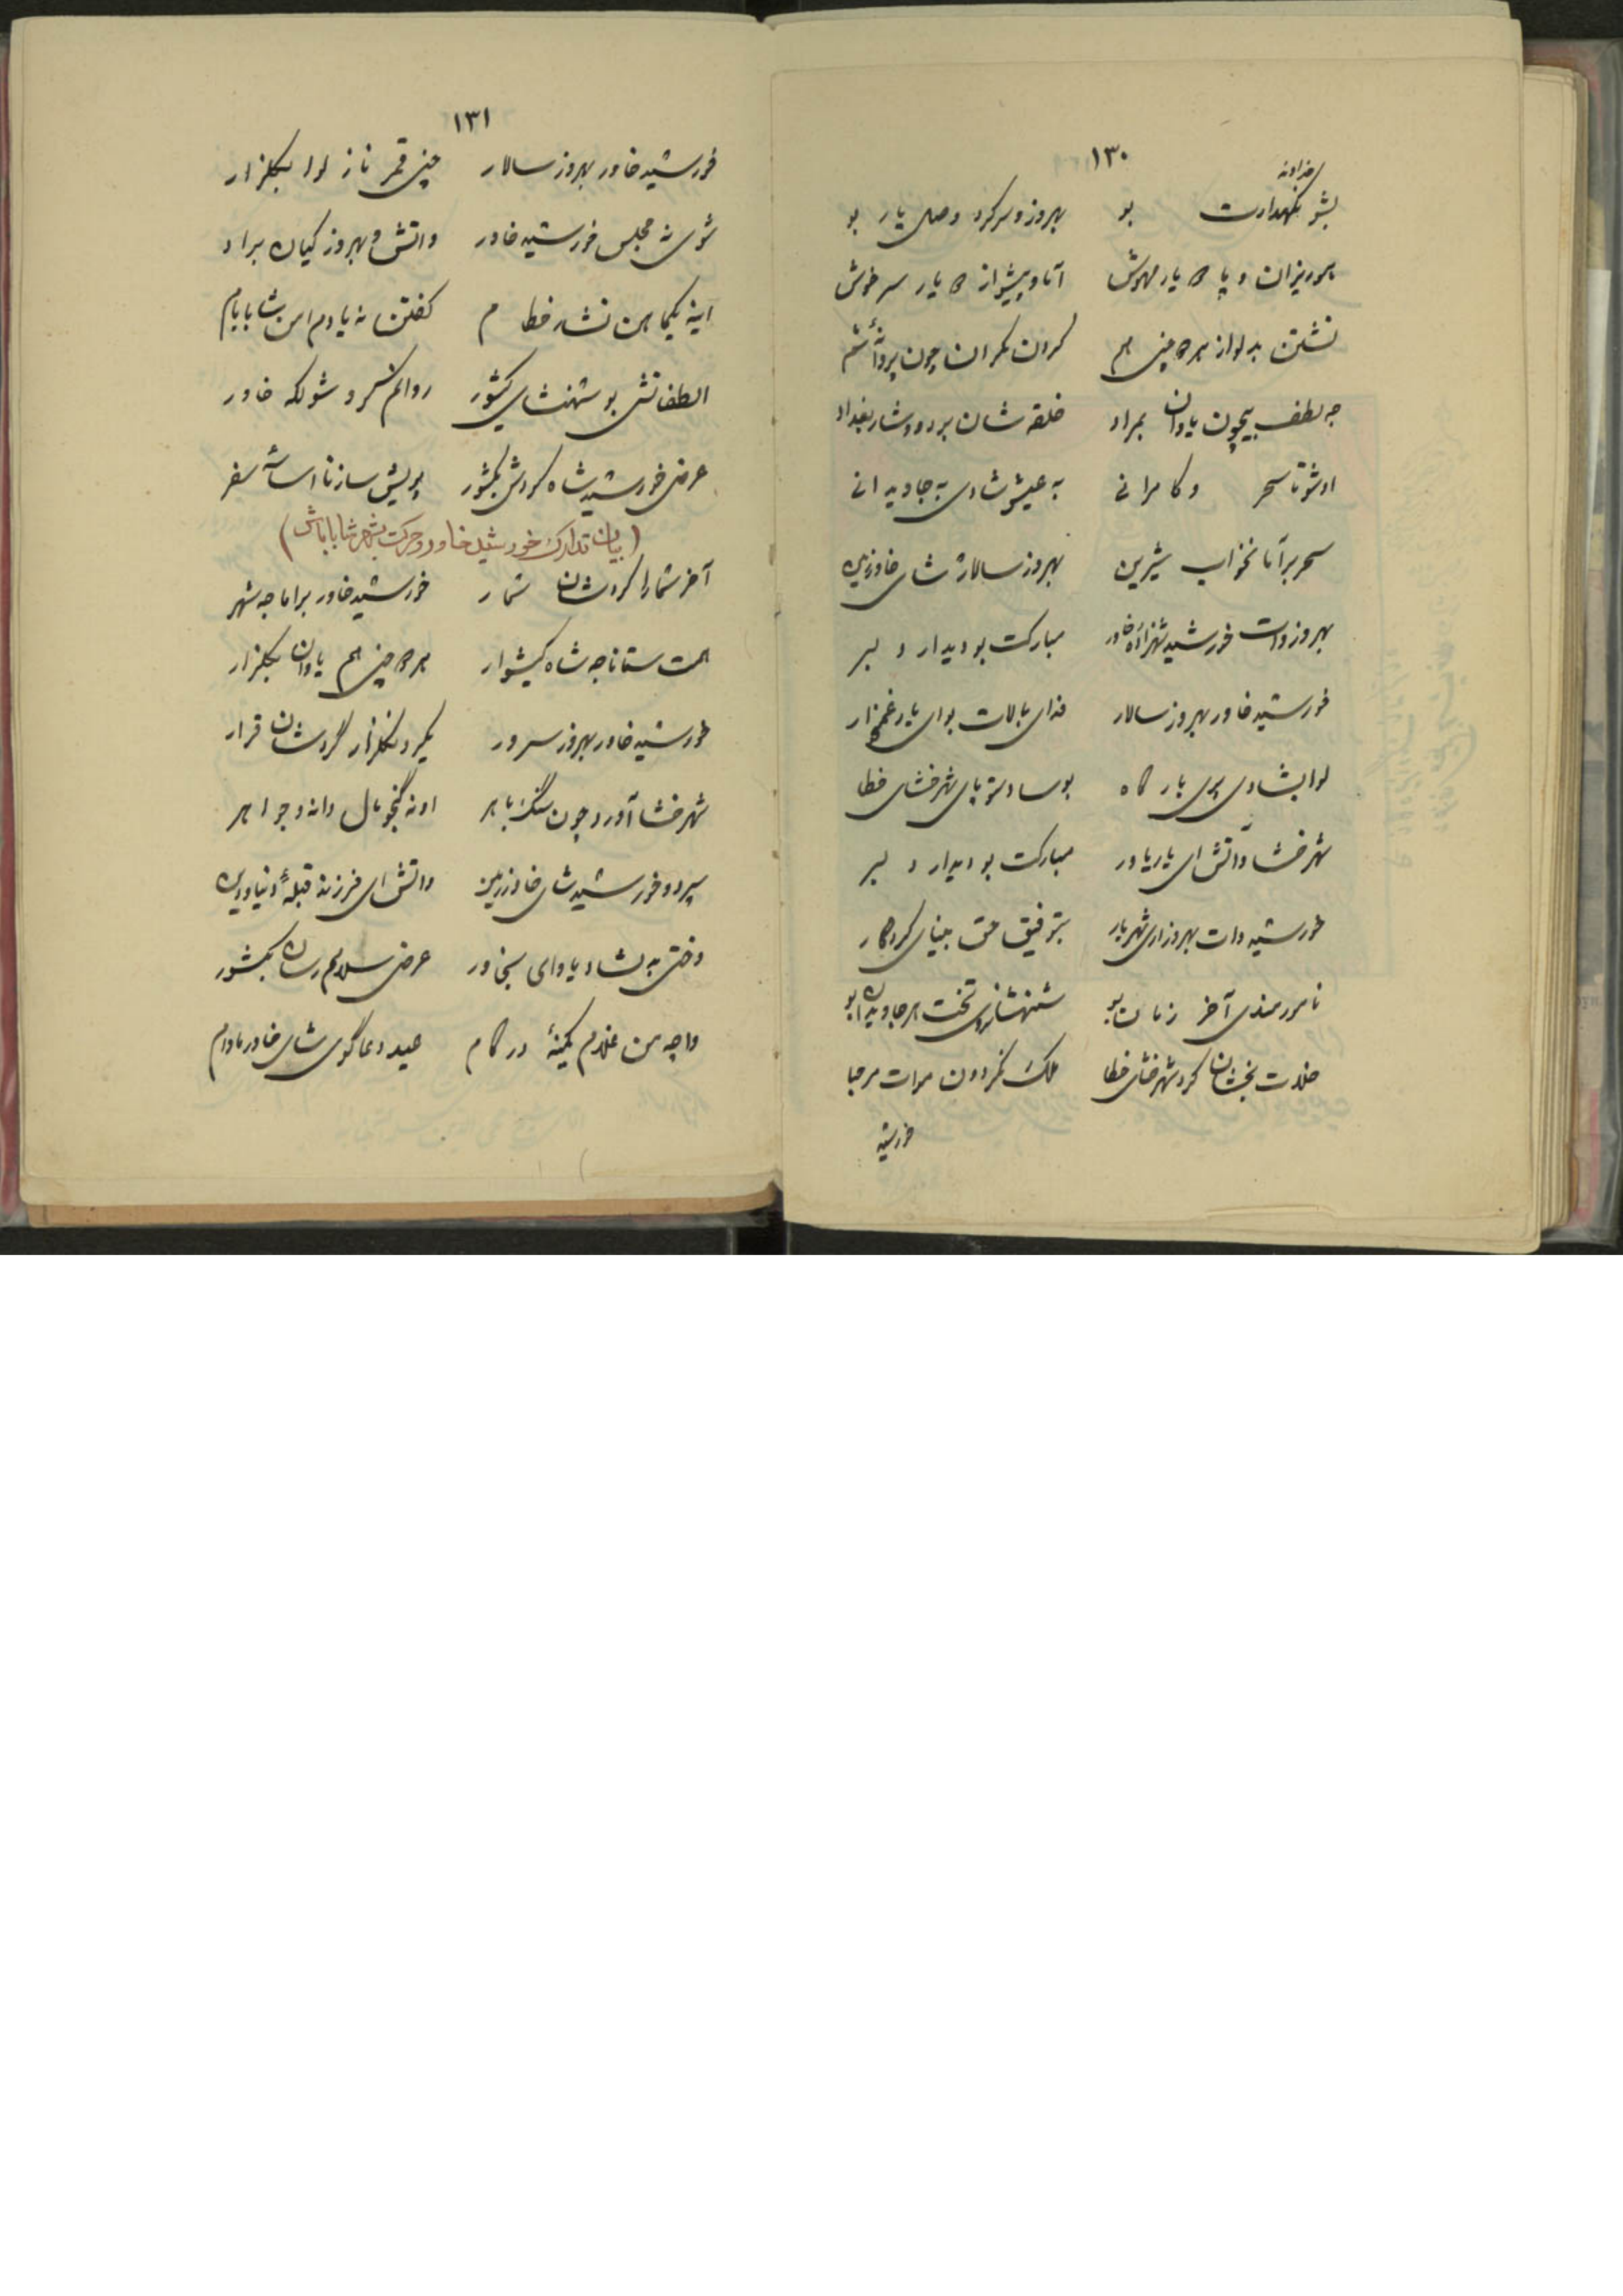 ۱۳۰
خداوند
بشو نگهدارت بو بهروز و سرکرد وصل یار بو
بوریزان و پا یار مهوش آما و پیشواز یار سرخوش
نشتن بدلواز هر چنی هم کردن مکران چون پروانه شم
جه لطف بیچون یاوان بمراد خلقه شان بردووشار بغداد
اوشو تا سحر و کامرانی به عیش شادی به جاویدانی
سحر برآما نخواب شیرین بهروز سالار شای خاور زمین
بهروز وات خورشید شهزاده خاور مبارکت بو دیدار دلبر
خورشید خاور بهروز سالار فدای بالات بوای یار غمخوار
لوا بشادی پری بارگاه بوسا دستوپای شهرخشای خطا
شهرخشا واتش ای یار یاور مبارکت بو دیدار دلبر
خورشید وات بهروز ای شهریار بتوفیق حق بینای کردگار
نامور مندی آخر زمان بو شهنشاه روی تخت هر جاویدان بو
خلات بخشان کرد شهرخشای خطا ملک نگردون موات مرحبا
خورشید
۱۳۱
خورشید خاور بهروز سالار چنی قمر ناز لوا بگلزار
شوی نه مجلس خورشید خاور واتش و بهروز کیان برادر
اینه یکماهن نشار خطام کفتن نه یادم امن شابابام
الطفاتش بو شهنشای کشور روانم کرو شولکه خاور
عرض خورشید شاه کردش بکشور پویش سازنا اساسه سفر
(بیان تدارک خورشید خاور و حرکت بشهر شا باباش)
آخر شمارا کردشان شمار خورشید خاور براما جه شهر
همت ستانا جه شاه کیشوار هر چنی هم یاوان بگلزار
خورشید خاور بهروز سرور یکرو نگلزار گردشان قرار
شهرخشا آورد چون سنگ باهر اونه گنجو مال دانه و جواهر
سپرد و خورشید شای خاور زمین واتش ای فرزند قبله دنیا و دین
وختی به لشاد یاوای بخاور عرض سلام رسان بکشور
واچه من غلام کمینه درگام صید دعاگوی شای خاور مادام